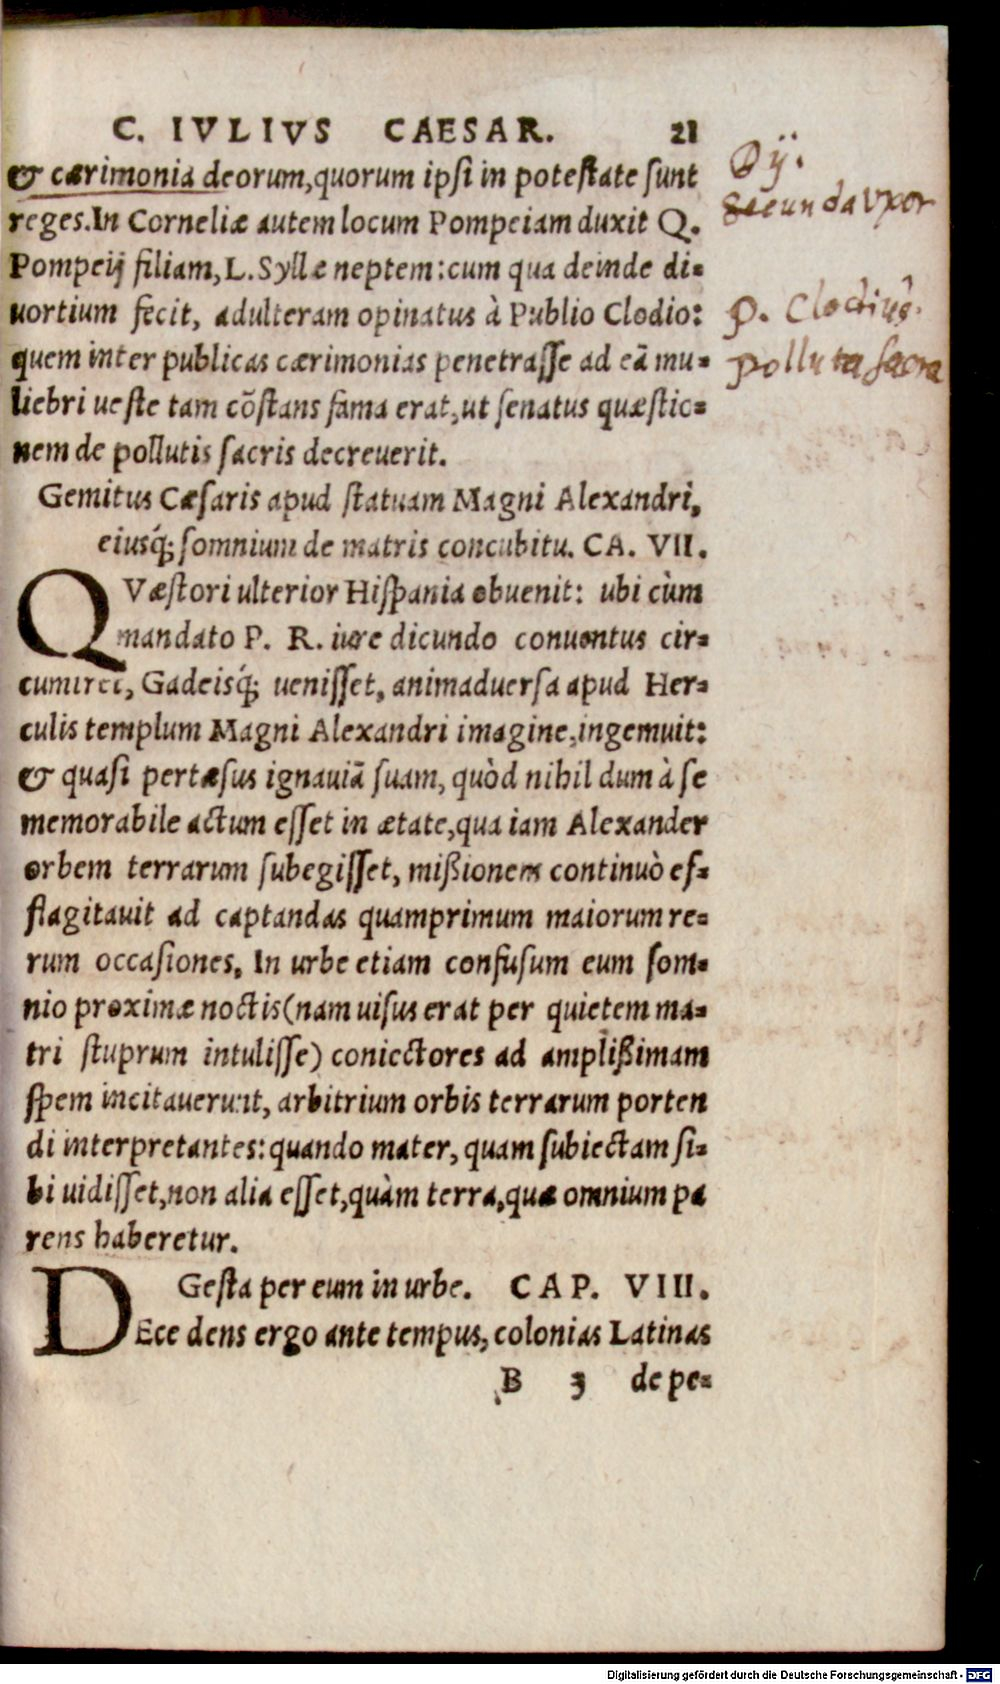 C. IVLIVS CAESAR. 21
& cærimonia deorum, quorum ipsi in potestate sunt
reges. In Corneliæ autem locum Pompeiam duxit Q.
Pompeij filiam, L. Syllæ neptem: cum qua deinde di-
uortium fecit, adulteram opinatus à Publio Clodio:
quem inter publicas cærimonias penetrasse ad eā mu-
liebri ueste tam cõstans fama erat, ut senatus quæstio-
nem de pollutis sacris decreuerit.
Gemitus Cæsaris apud statuam Magni Alexandri,
eiusq́; somnium de matris concubitu. CA. VII.
QVæstori ulterior Hispania obuenit: ubi cùm
mandato P. R. iure dicundo conuentus cir-
cumiret, Gadeisq́; uenisset, animaduersa apud Her-
culis templum Magni Alexandri imagine, ingemuit:
& quasi pertæsus ignauiā suam, quòd nihil dum à se
memorabile actum esset in ætate, qua iam Alexander
orbem terrarum subegisset, missionem continuò ef-
flagitauit ad captandas quamprimum maiorum re-
rum occasiones. In urbe etiam confusum eum som-
nio proximæ noctis (nam uisus erat per quietem ma-
tri stuprum intulisse) coniectores ad amplissimam
spem incitauerunt, arbitrium orbis terrarum porten
di interpretantes: quando mater, quam subiectam si-
bi uidisset, non alia esset, quàm terra, quæ omnium pa
rens haberetur.
Gesta per eum in urbe. CAP. VIII.
DEcedens ergo ante tempus, colonias Latinas
B 3 de pe-
Dij.
Secunda Vxor
P. Clodius.
polluta sacra
Digitalisierung gefördert durch die Deutsche Forschungsgemeinschaft - DFG